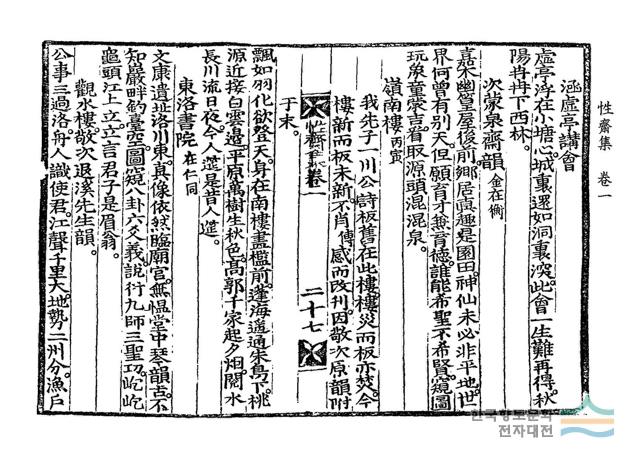 性齋集 卷一
涵虛亭講會
虛亭浮在小塘心城裏還如洞裏深此會一生難再得秋
陽冉冉下西林
次蒙泉齋韻 金在脩
嘉木幽篁屋後前鄉居眞趣是園田神仙未必非平地世
界何曾有別天但願育才兼育德誰能希聖不希賢窺圖
玩象童蒙吉看取源頭混混泉
嶺南樓 丙寅
我先子一川公詩板舊在此樓樓災而板亦焚今
樓新而板未新不肖傳感而改刊因敬次原韻附
于末
性齋集卷一 二十七
飄如羽化欲登天身在南樓畫檻前蓬海遙通朱鳥下桃
源近接白雲邊平原萬樹生秋色高郭千家起夕烟閱水
長川流日夜今人遊是昔人遊
東洛書院 在仁同
文康遺址洛川東眞像依然臨廟宮無慍堂中琴韻古不
知巖畔釣臺空圖窺八卦六爻義說衍九師三聖功屹屹
龜頭江上立立言君子是眉翁
觀水樓敬次退溪先生韻
公事三過洛舟人識使君江聲千里大地勢二州分漁戶
한국향토문화
전자대전